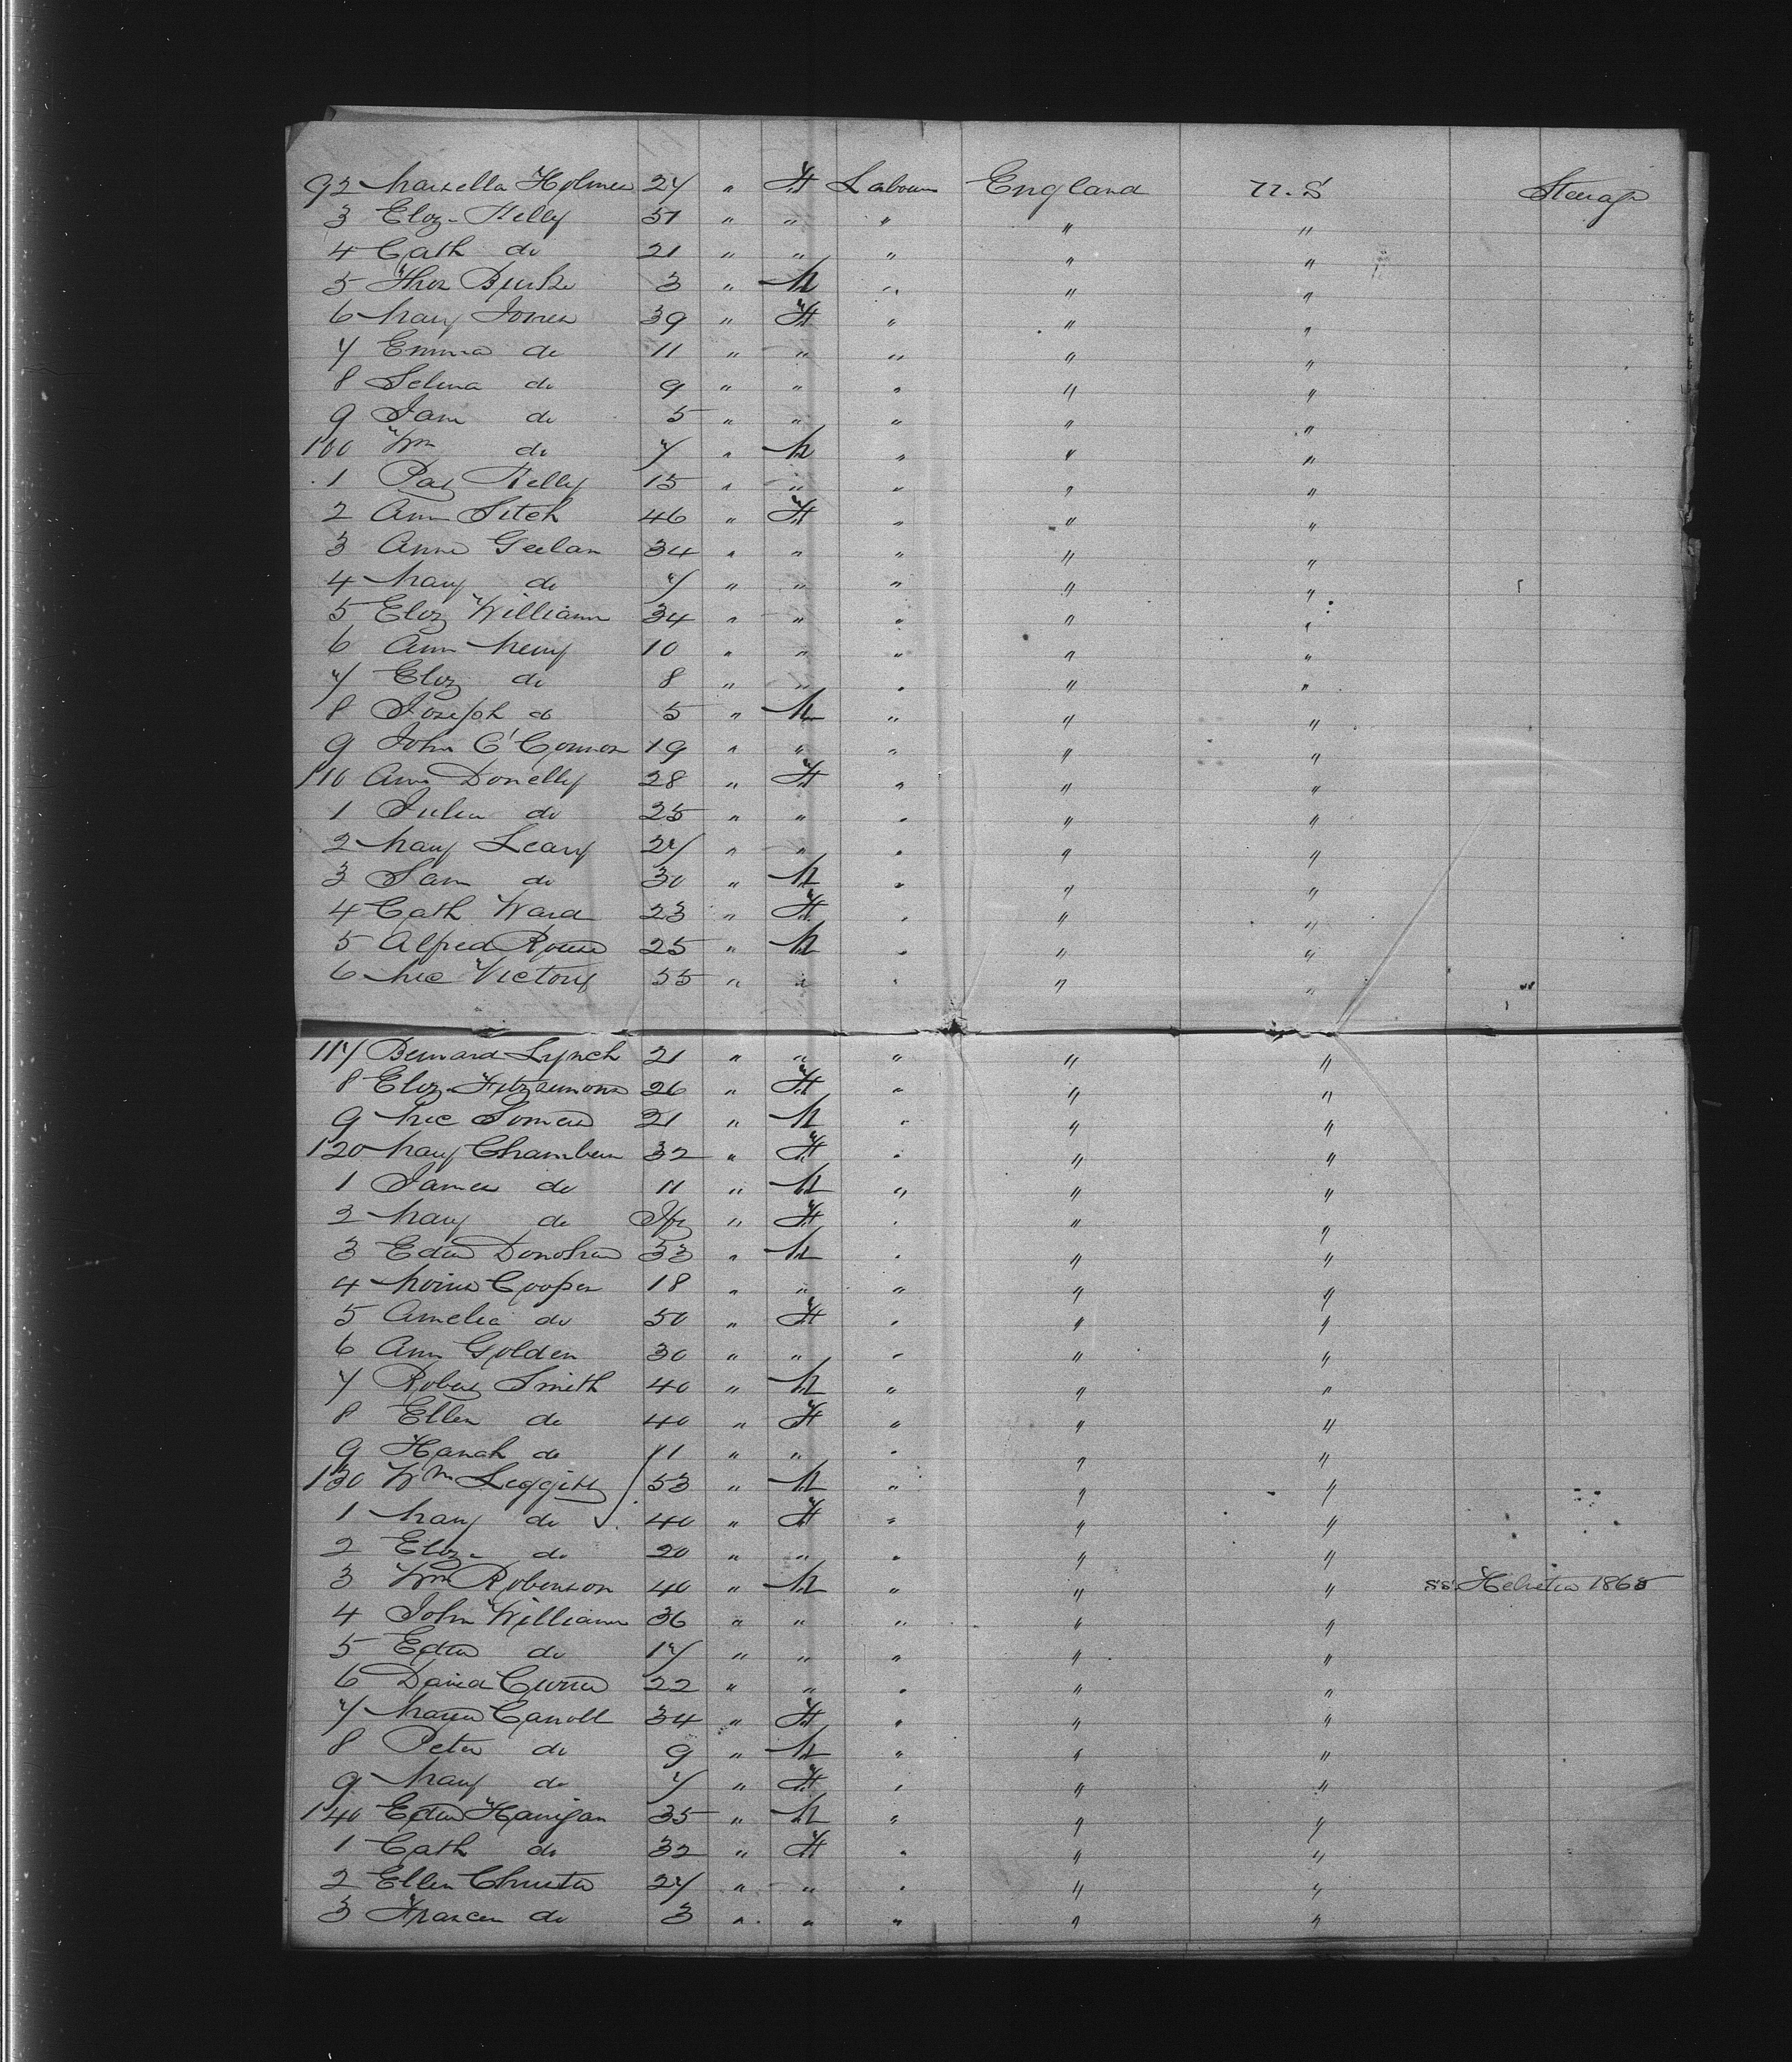 92 Marsella Holmes 27 " F Labour England U.S Steerage
3 Eliz. Kelly 51 " " " " "
4 Cath do 21 " " " " "
5 Thos Burke 3 " M " " "
6 Mary Jones 39 " F " " "
7 Emma do 11 " " " " "
8 Selina do 9 " " " " "
9 Jane do 5 " " " " "
100 Wm do 7 " M " " "
1 Pat Kelly 15 " " " " "
2 Ann Fitch 46 " F " " "
3 Anne Geelan 34 " " " " "
4 Mary do 7 " " " " "
5 Eliz Williams 34 " " " " "
6 Ann 10 " " " " "
7 Eliz do 8 " " " " "
8 Joseph do 5 " M " " "
9 John O'Connor 19 " " " " "
110 Ann Donelly 28 " F " " "
1 Julia do 25 " " " " "
2 Mary Leary 27 " " " " "
3 Sam do 30 " M " " "
4 Cath Ward 23 " F " " "
5 Alfred Rouse 25 " M " " "
6 Mic Victory 55 " " " " "
117 Bernard Lynch 21 " " " " "
8 Eliz. Fitzsimons 26 " F " " "
9 Mic Somers 21 " M " " "
120 Mary Chambers 32 " F " " "
1 James do 11 " M " " "
2 Mary do Inf " F " " "
3 Edwd Donohue 33 " M " " "
4 Cooper 18 " " " " "
5 Amelia do 50 " F " " "
6 Ann Golden 30 " " " " "
7 Robert Smith 40 " M " " "
8 Ellen do 40 " F " " "
9 Hanah do 11 " " " " "
130 Wm Leggitt 53 " M " " "
1 Mary do 40 " F " " "
2 Eliz. do 20 " " " " "
3 Wm Robinson 40 " M " " " ss. Helvetia 1865
4 John Williams 36 " " " " "
5 Edwd do 17 " " " " "
6 David 22 " " " " "
7 Carroll 34 " F " " "
8 Peter do 9 " M " " "
9 Mary do 7 " F " " "
140 Edwd Hanigan 35 " M " " "
1 Cath do 32 " F " " "
2 Ellen 27 " " " " "
3 Frances do 3 " " " " "